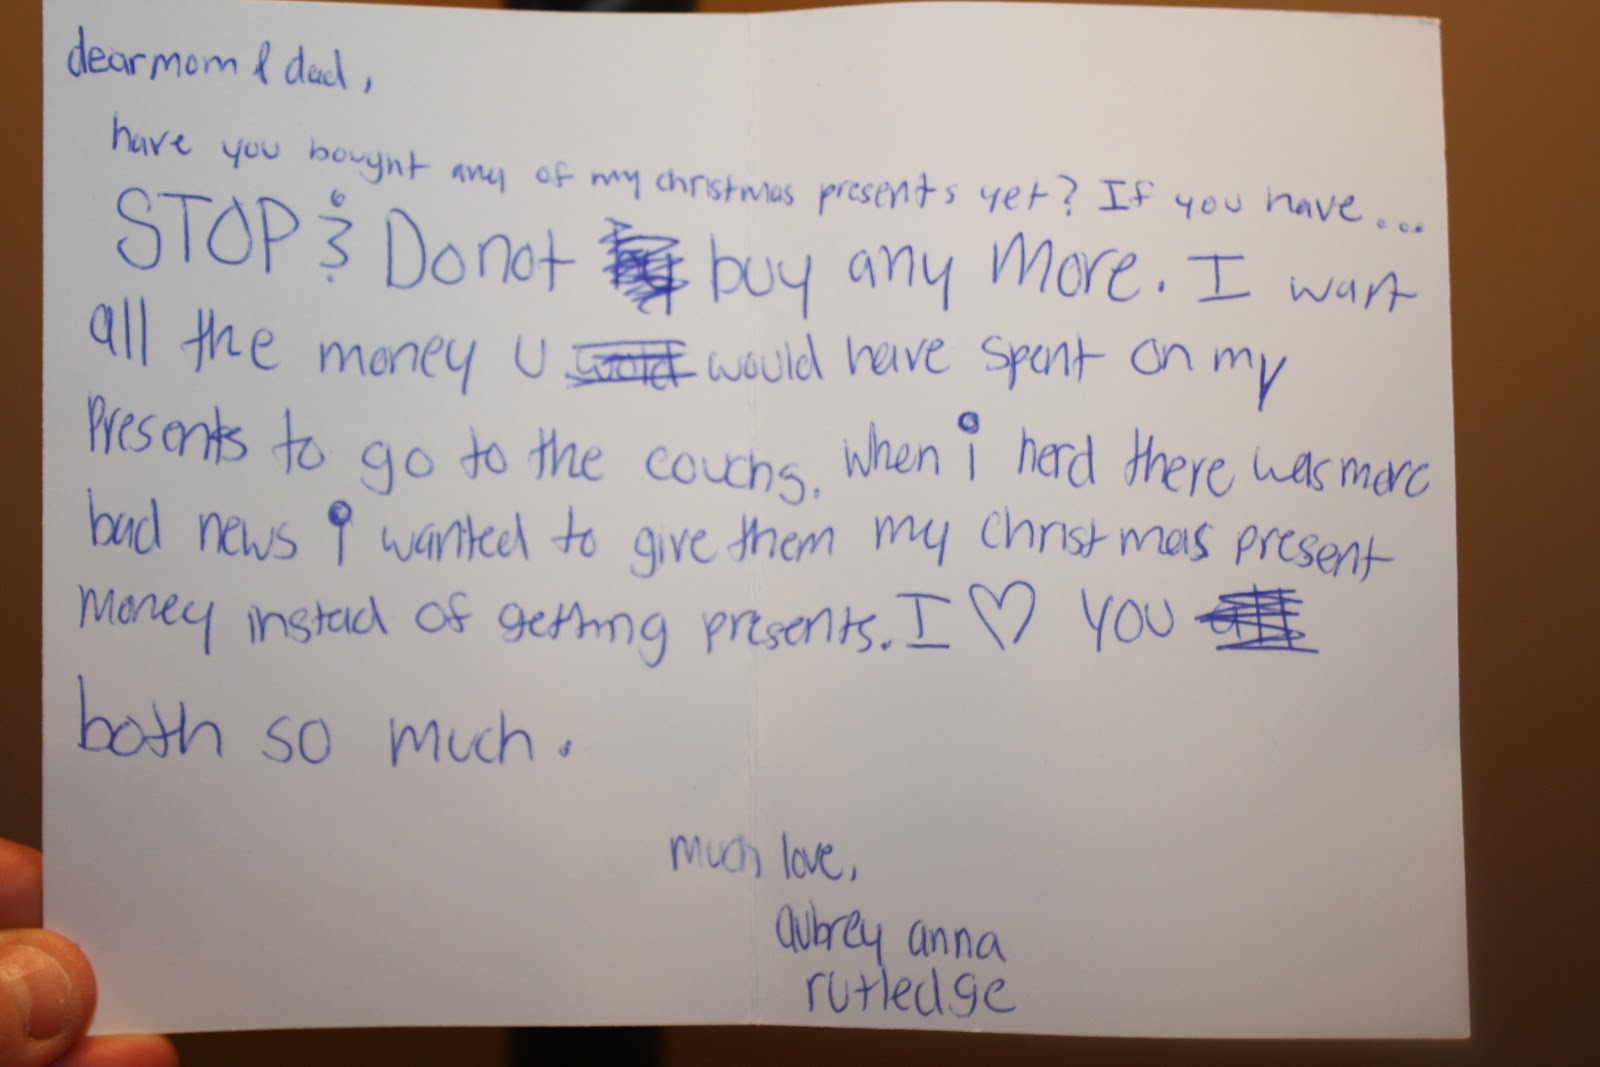 dear mom & dad,
have you bought any of my christmas presents yet? If you have...
STOP & Do not buy any More. I want
all the money U would have spent on my
Presents to go to the couchs. when i herd there was more
bad news i wanted to give them my christmas present
Money instead of getting presents. I ♡ YOU
both so much.
much love,
aubrey anna
rutledge